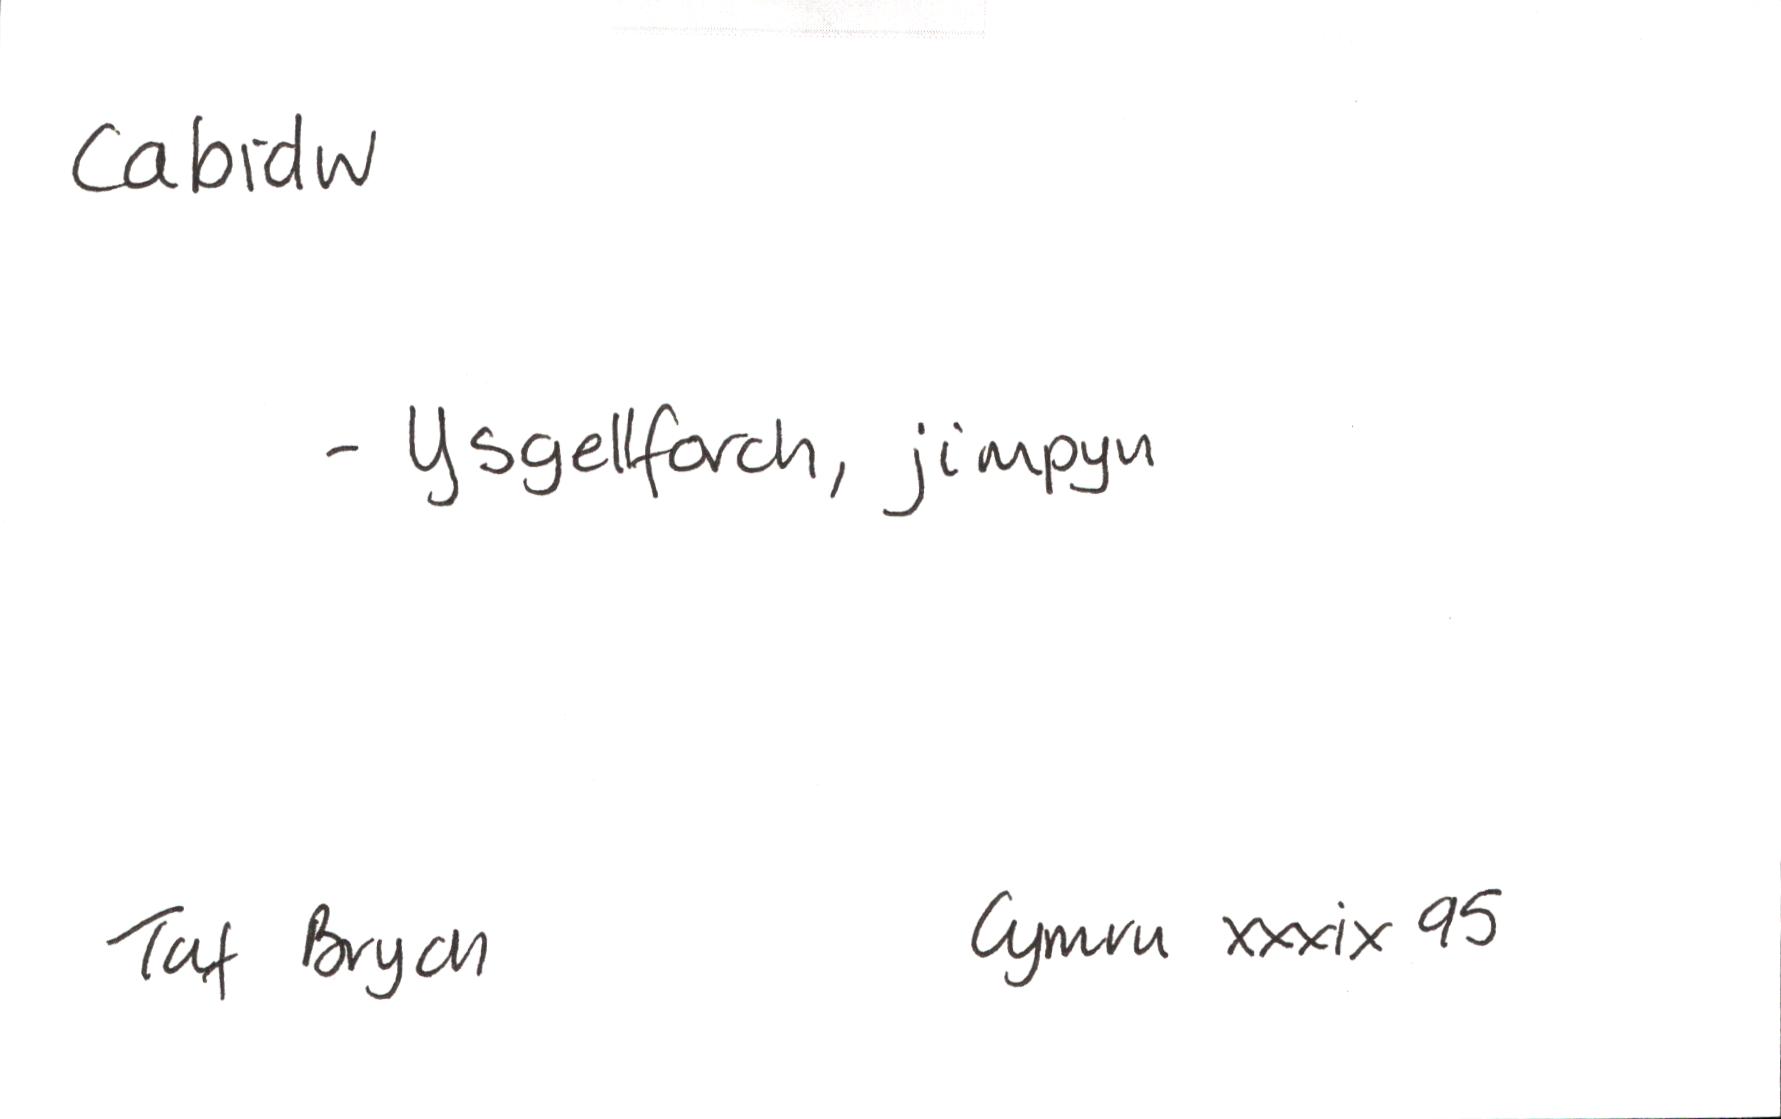 Cabidw
- Ysgellforch, jimpyn
Taf Brych
Cymru xxxix 95